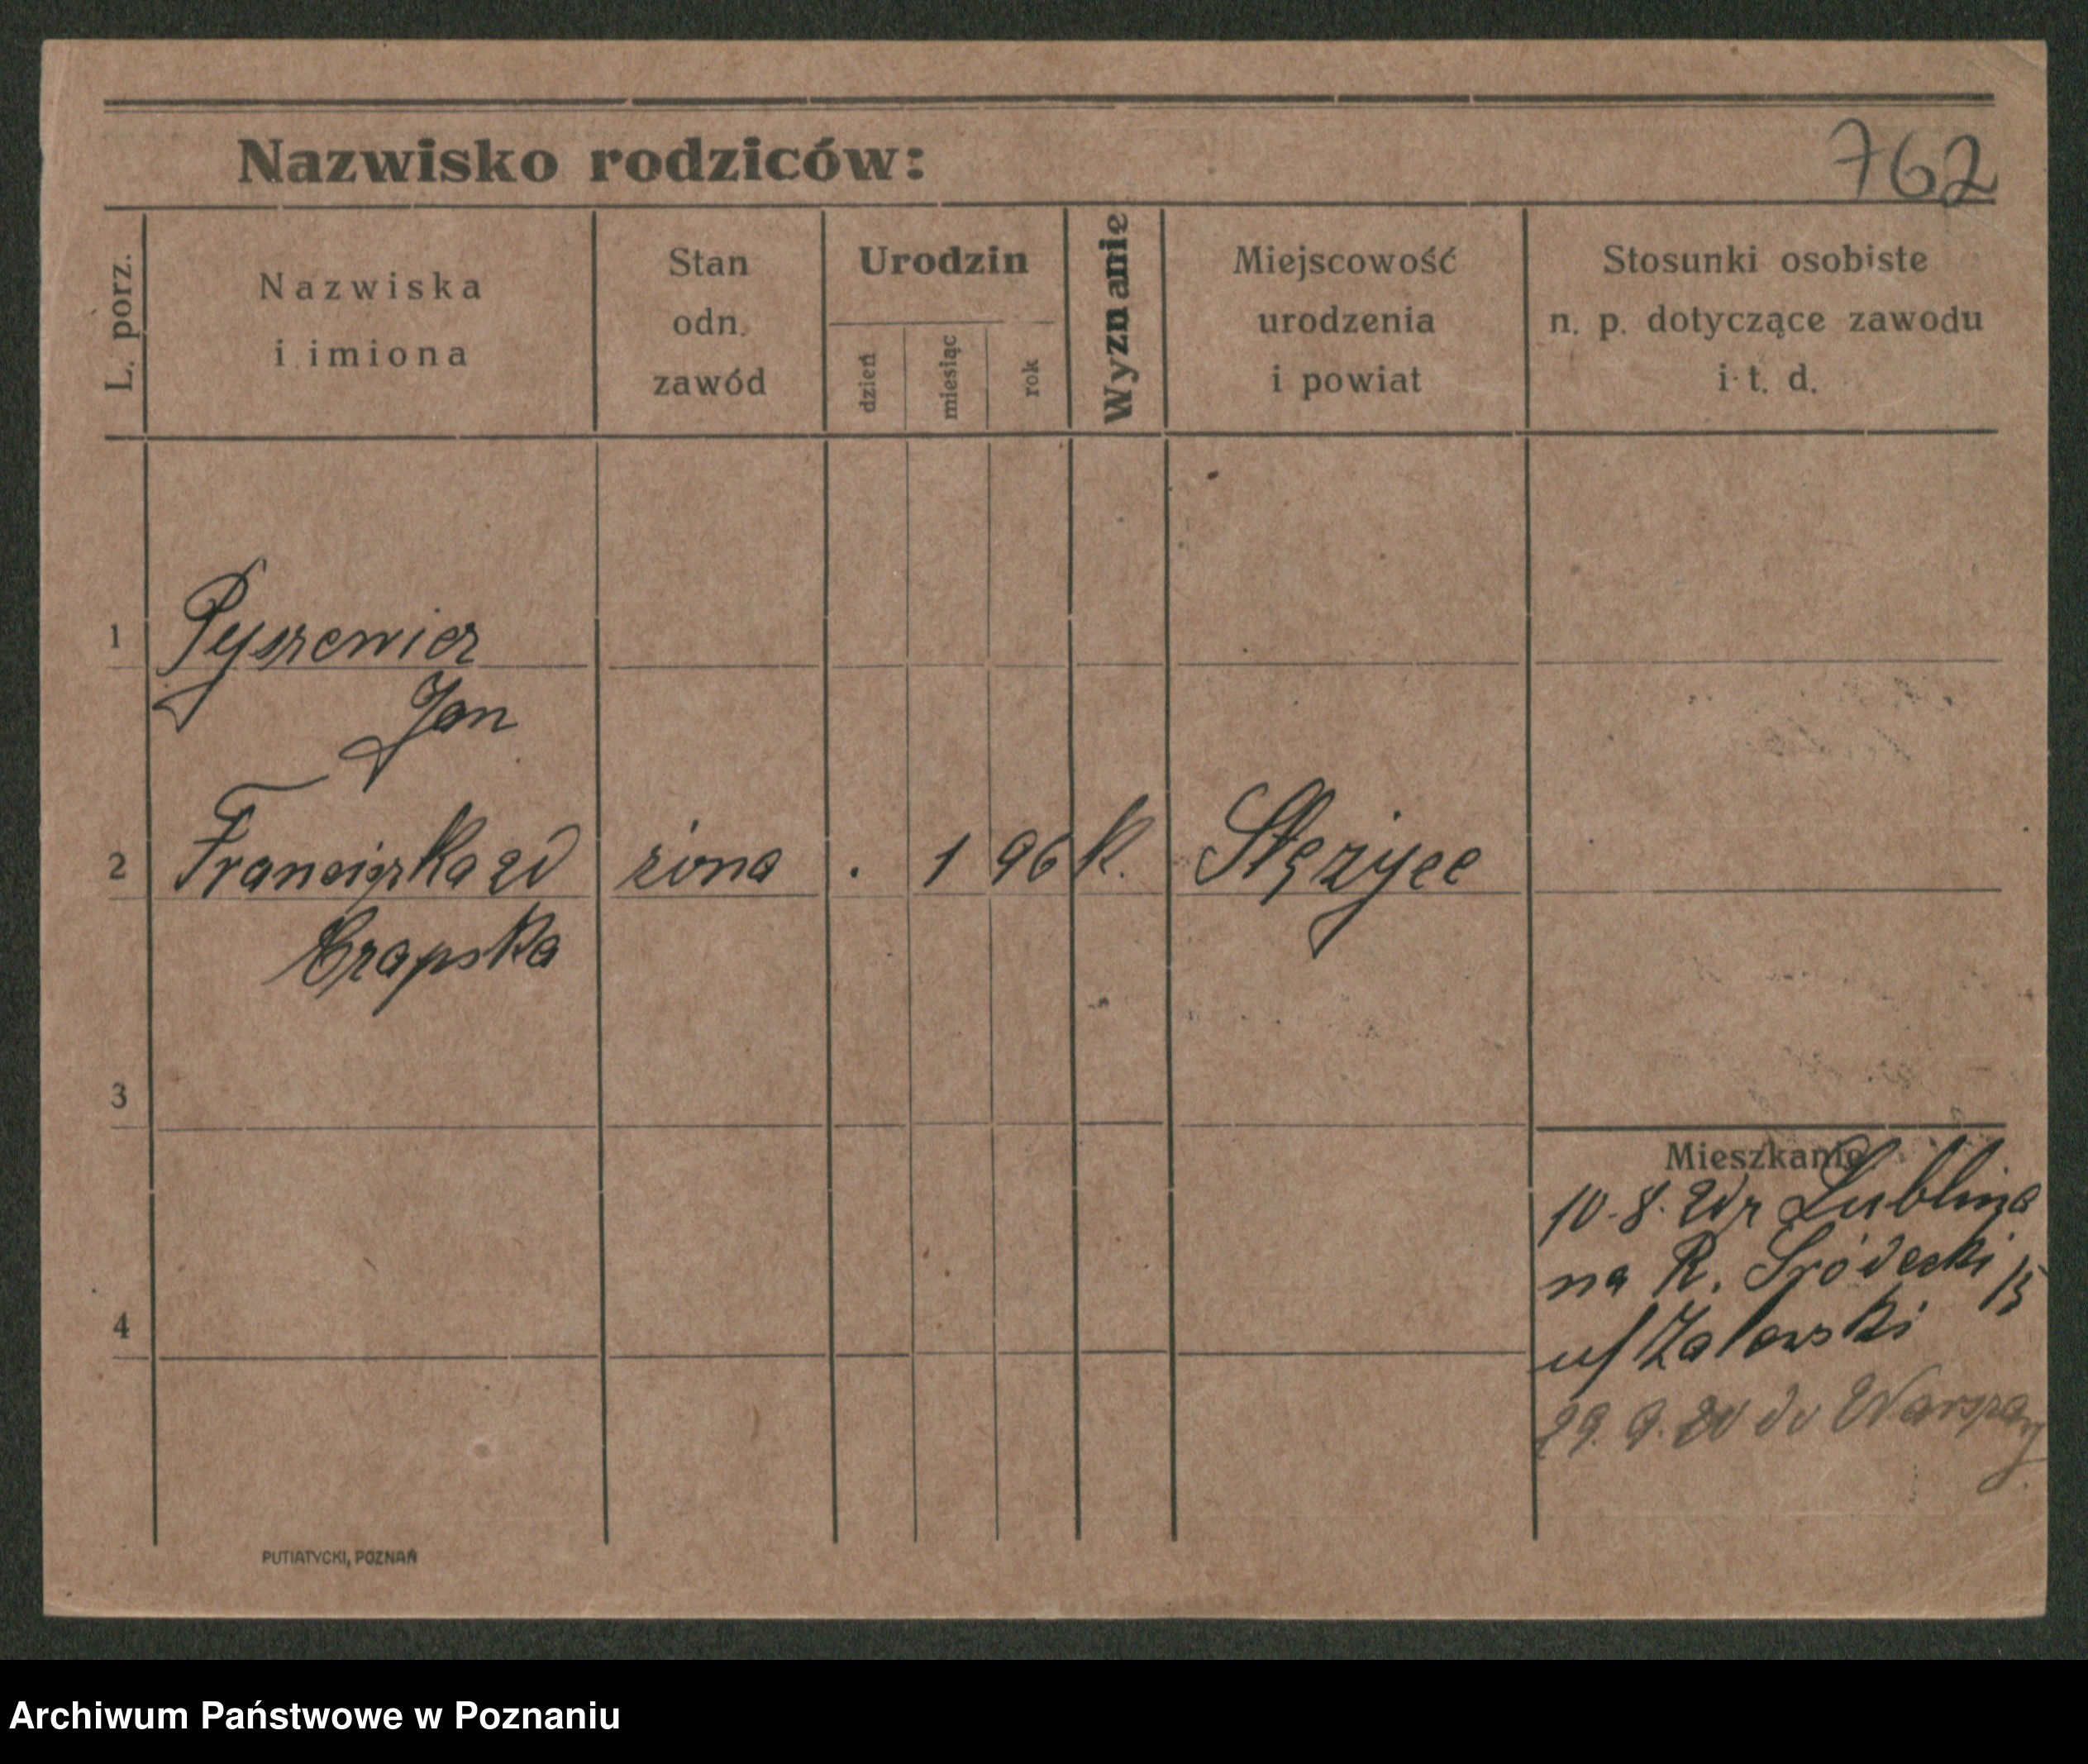 Nazwisko rodziców:
762
L. porz.
Nazwiska
i imiona
Stan
odn.
zawód
Urodzin
dzień
miesiąc
rok
Wyznanie
Miejscowość
urodzenia
i powiat
Stosunki osobiste
n. p. dotyczące zawodu
i t. d.
1 Pyszewicz
Jan
2 Franciszka zd żona . 1 96 k. Stężyce
Czapska
3
4
Mieszkanie
10. 8. 20 z Lublina
na R. Śródecki 15
u/ Zalewski
29. 9. 20 do Warszawy
PUTIATYCKI, POZNAŃ
Archiwum Państwowe w Poznaniu